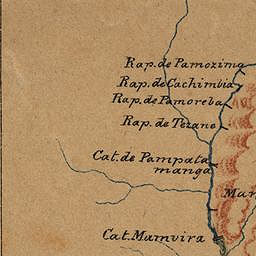 Rap. de Pamozima
Rap. de Cachimbia
Rap. de Pamoreba
Rap. de Tezane
Cat. de Pampata
manga
Mar
Cat. Mamvira